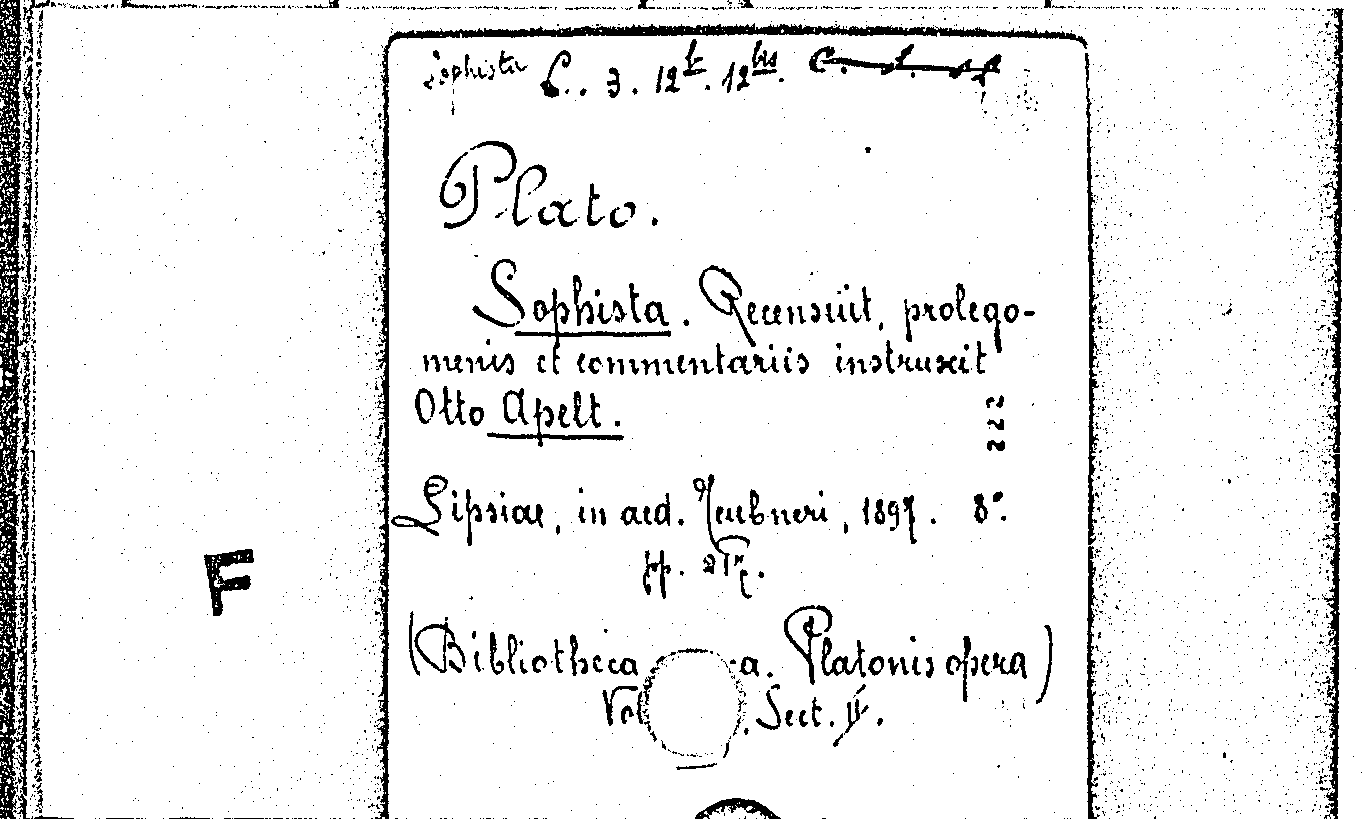 Sophista C. 3. 12 b. 12 bis.
Plato.
Sophista. Recensuit, prolego-
menis et commentariis instruxit
Otto Apelt.
222
Lipsiae, in aed. Teubneri, 1897. 8°.
pp.
F
(Bibliotheca Platonis opera)
Sect. II.